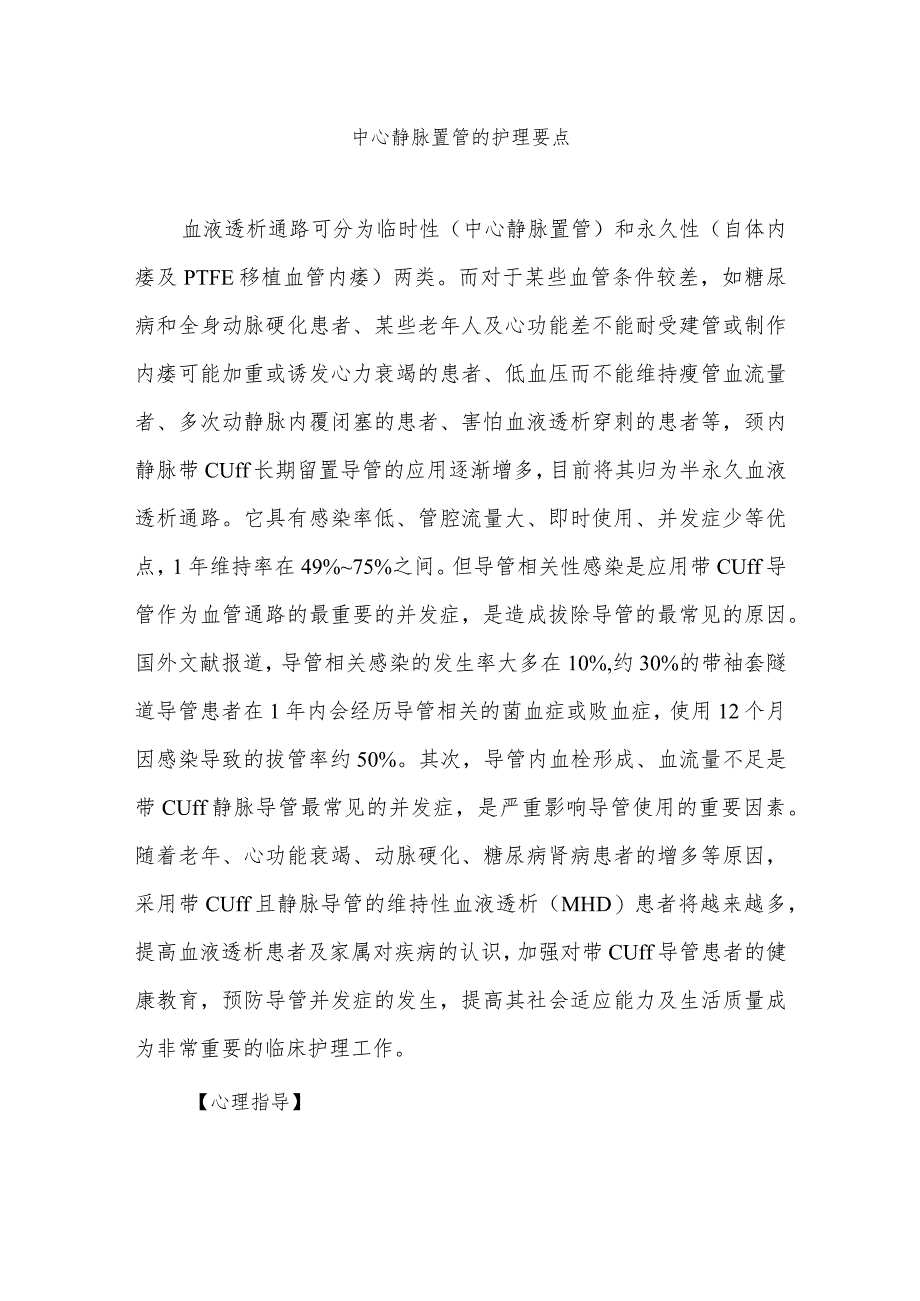 中心静脉置管的护理要点
血液透析通路可分为临时性（中心静脉置管）和永久性（自体内
瘘及PTFE移植血管内瘘）两类。而对于某些血管条件较差，如糖尿
病和全身动脉硬化患者、某些老年人及心功能差不能耐受建管或制作
内瘘可能加重或诱发心力衰竭的患者、低血压而不能维持瘦管血流量
者、多次动静脉内覆闭塞的患者、害怕血液透析穿刺的患者等，颈内
静脉带CUff长期留置导管的应用逐渐增多，目前将其归为半永久血液
透析通路。它具有感染率低、管腔流量大、即时使用、并发症少等优
点，1年维持率在49%~75%之间。但导管相关性感染是应用带CUff导
管作为血管通路的最重要的并发症，是造成拔除导管的最常见的原因。
国外文献报道，导管相关感染的发生率大多在10%,约30%的带袖套隧
道导管患者在1年内会经历导管相关的菌血症或败血症，使用12个月
因感染导致的拔管率约50%。其次，导管内血栓形成、血流量不足是
带CUff静脉导管最常见的并发症，是严重影响导管使用的重要因素。
随着老年、心功能衰竭、动脉硬化、糖尿病肾病患者的增多等原因，
采用带CUff且静脉导管的维持性血液透析（MHD）患者将越来越多，
提高血液透析患者及家属对疾病的认识，加强对带CUff导管患者的健
康教育，预防导管并发症的发生，提高其社会适应能力及生活质量成
为非常重要的临床护理工作。
【心理指导】